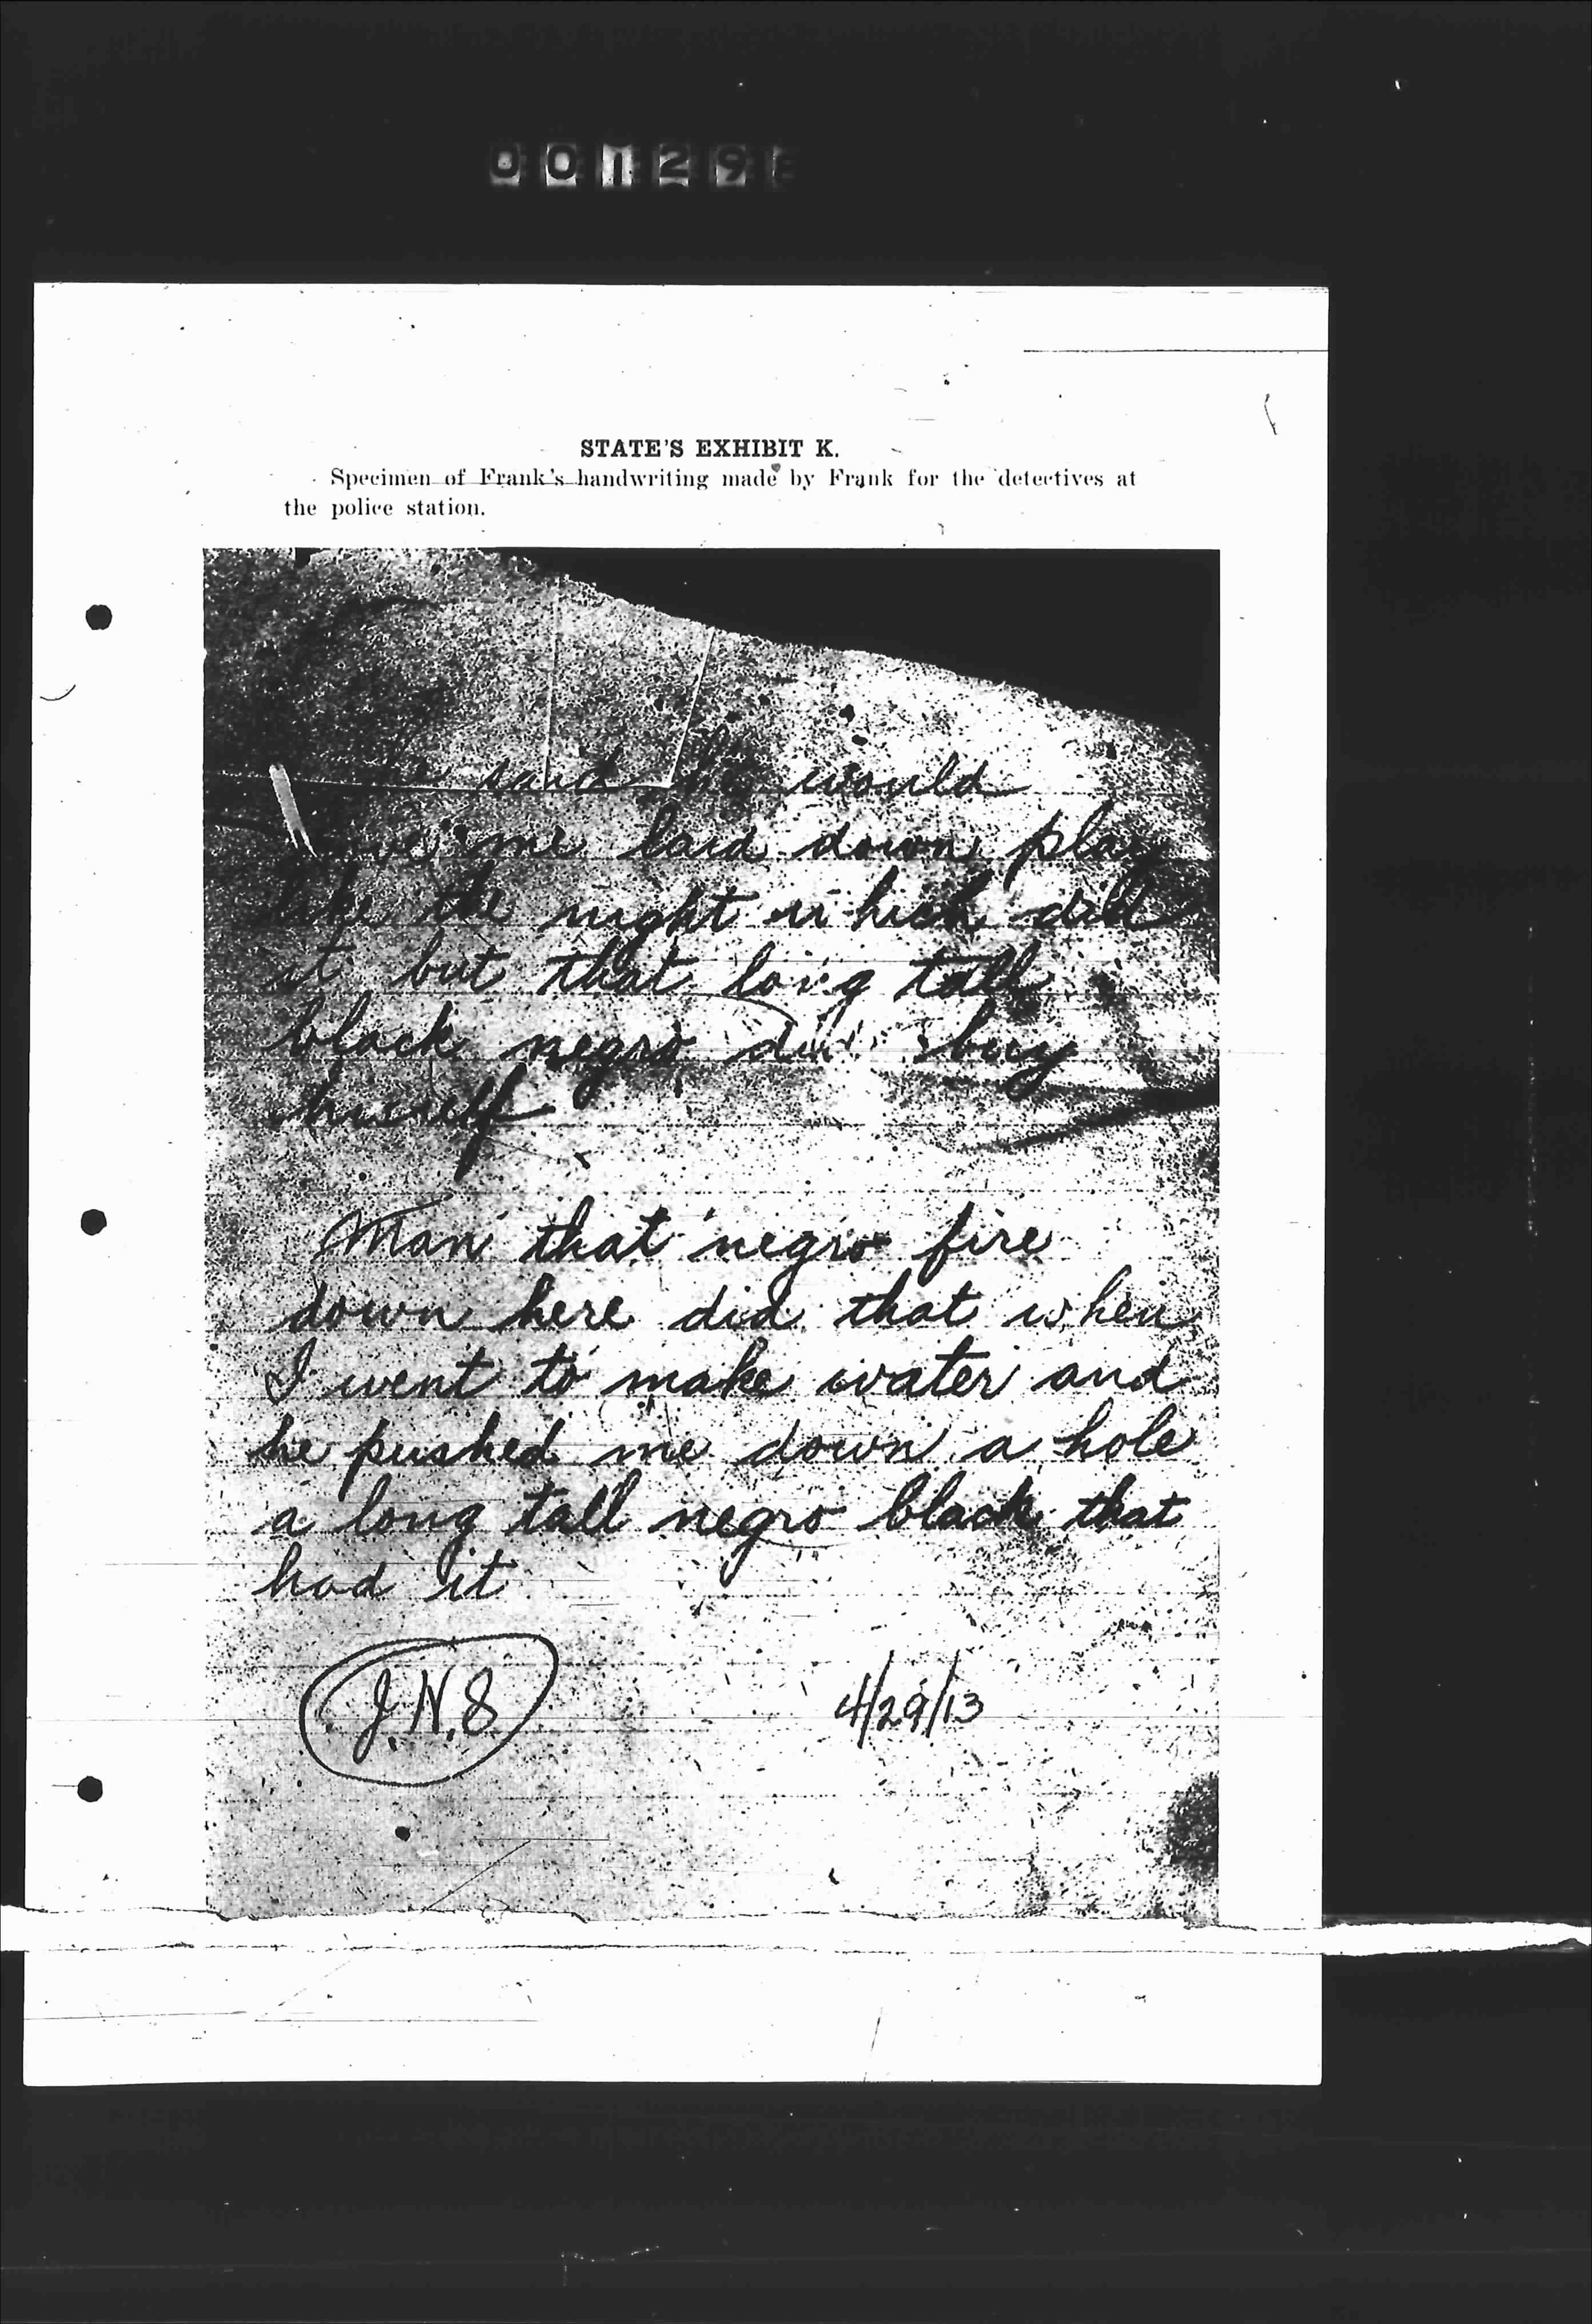 00129
STATE'S EXHIBIT K.
Specimen of Frank's handwriting made by Frank for the detectives at
the police station.
said he would
me laid down play
like the night witch did
it but that long tall
black negro did buy
hisself
Mam that negro fire
down here did that when
I went to make water and
he pushed me down a hole
a long tall negro black that
had it
J.N.S
4/29/13